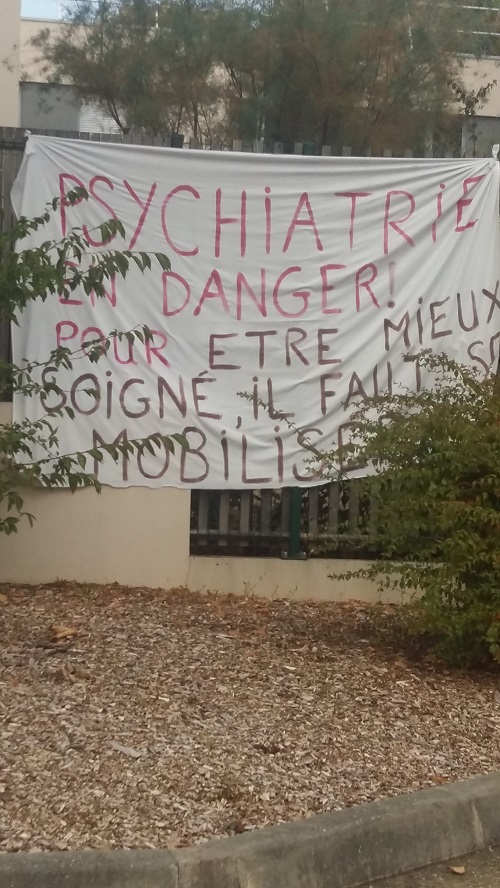 PSYCHIATRIE
EN DANGER!
POUR ETRE MIEUX
SOIGNÉ, IL FAUT SE
MOBILISER